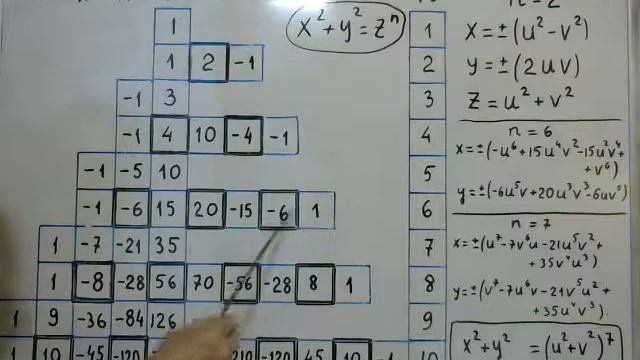 x² + y² = zⁿ
1
1 2 -1
-1 3
-1 4 10 -4 -1
-1 -5 10
-1 -6 15 20 -15 -6 1
1 -7 -21 35
1 -8 -28 56 70 -56 -28 8 1
1 9 -36 -84 126
1 10 -45 -120 210 -120 45 10 -1
1
2
3
4
5
6
7
8
9
10
n = 2
x = ±(u² - v²)
y = ±(2uv)
z = u² + v²
n = 6
x = ±(-u⁶ + 15u⁴v² - 15u²v⁴ +
+ v⁶)
y = ±(-6u⁵v + 20u³v³ - 6uv⁵)
n = 7
x = ±(u⁷ - 7v⁶u - 21u⁵v² +
+ 35v⁴u³)
y = ±(v⁷ - 7u⁶v - 21v⁵u² +
+ 35u⁴v³).
x² + y² = (u² + v²)⁷